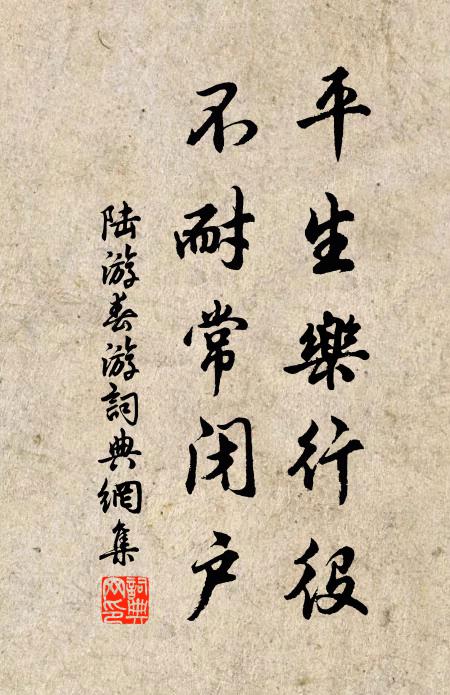 平生樂行役
不耐常闭户
陆游春游詞典網集
詞典網印